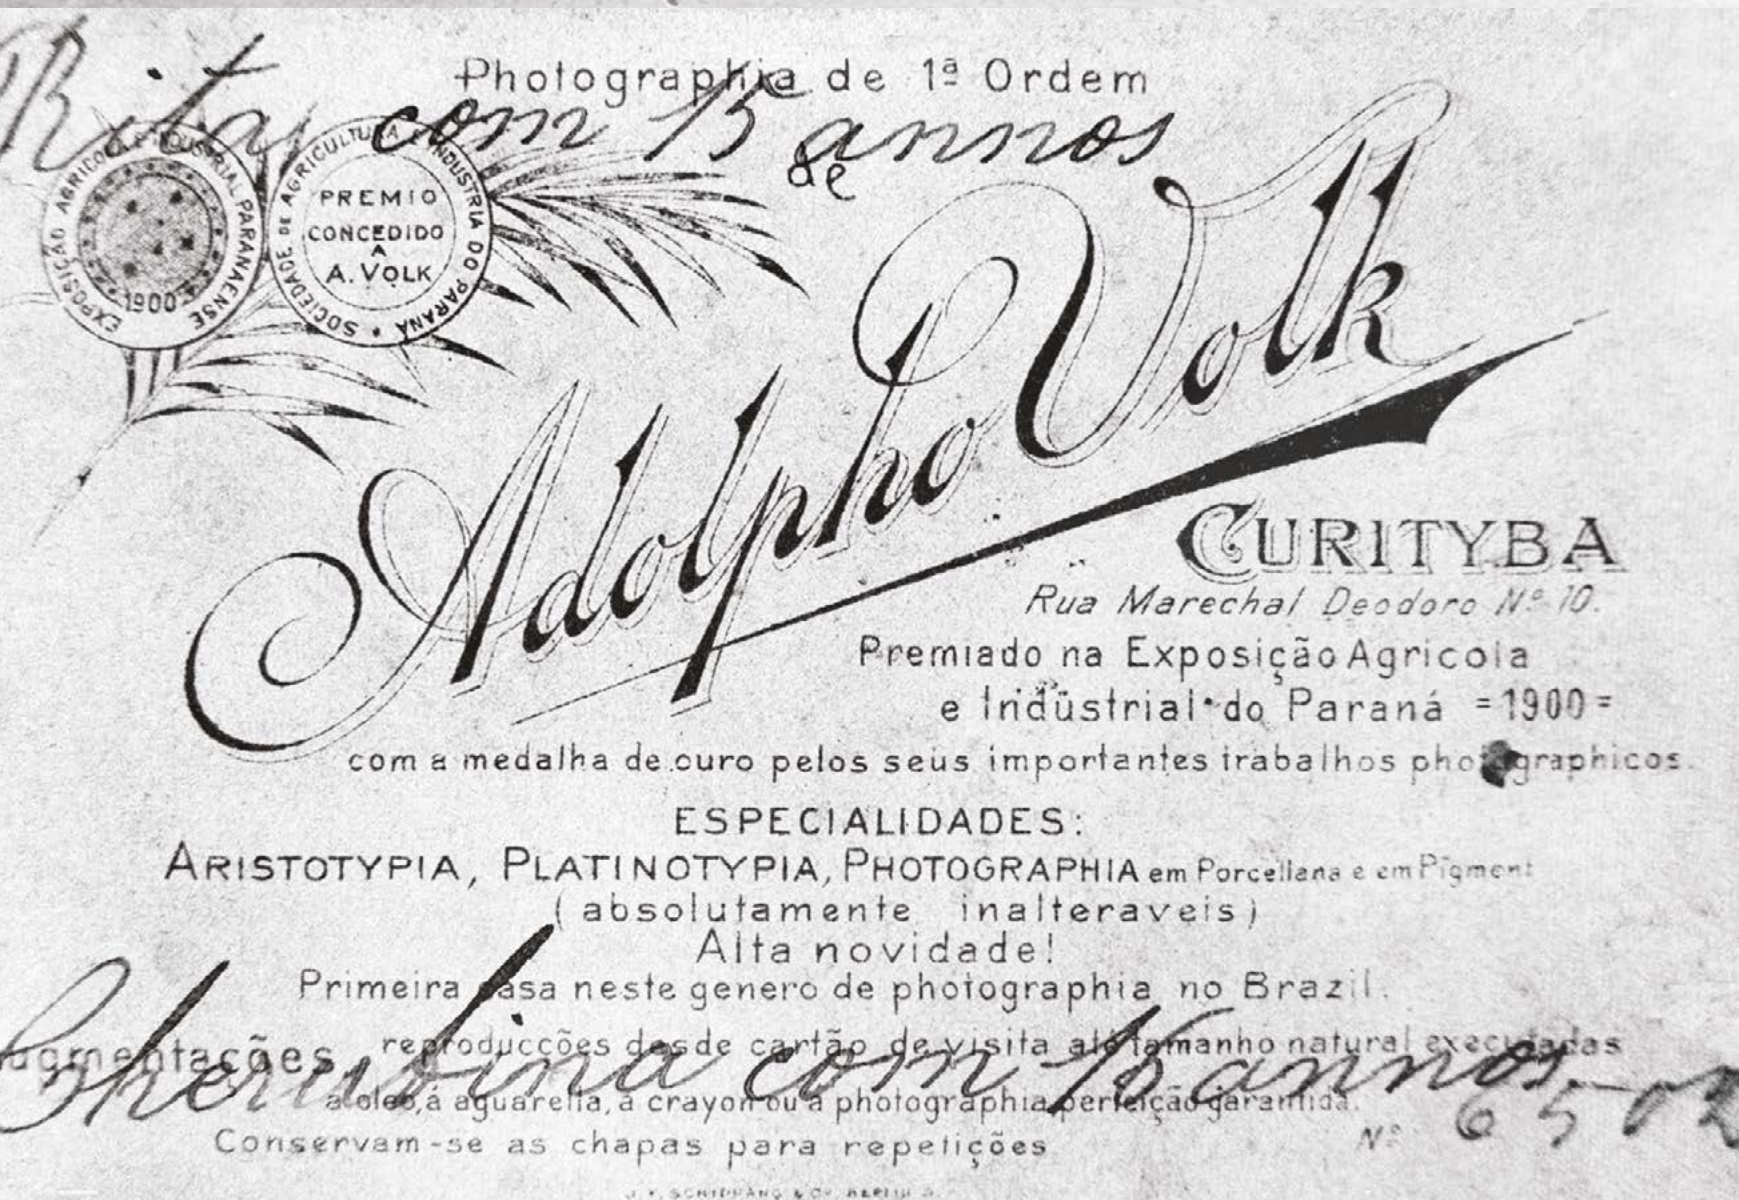 Photographia de 1ª Ordem
Rita, com 15 annos
de
EXPOSIÇÃO AGRICOLA E INDUSTRIAL PARANAENSE
1900
SOCIEDADE DE AGRICULTURA E INDUSTRIA DO PARANÁ
PREMIO
CONCEDIDO
A
A. VOLK
Adolpho Volk
CURITYBA
Rua Marechal Deodoro Nº 10.
Premiado na Exposição Agricola
e Indústrial do Paraná =1900=
com a medalha de ouro pelos seus importantes trabalhos photographicos.
ESPECIALIDADES:
ARISTOTYPIA, PLATINOTYPIA, PHOTOGRAPHIA em Porcellana e em Pigment
(absolutamente inalteraveis)
Alta novidade!
Primeira casa neste genero de photographia no Brazil.
augmentações, reproducções desde cartão de visita até tamanho natural executadas
Cherubina com 16 annos
a oleo, à aguarella, à crayon ou à photographia, perfeição garantida.
Conservam-se as chapas para repetições
Nº 6502